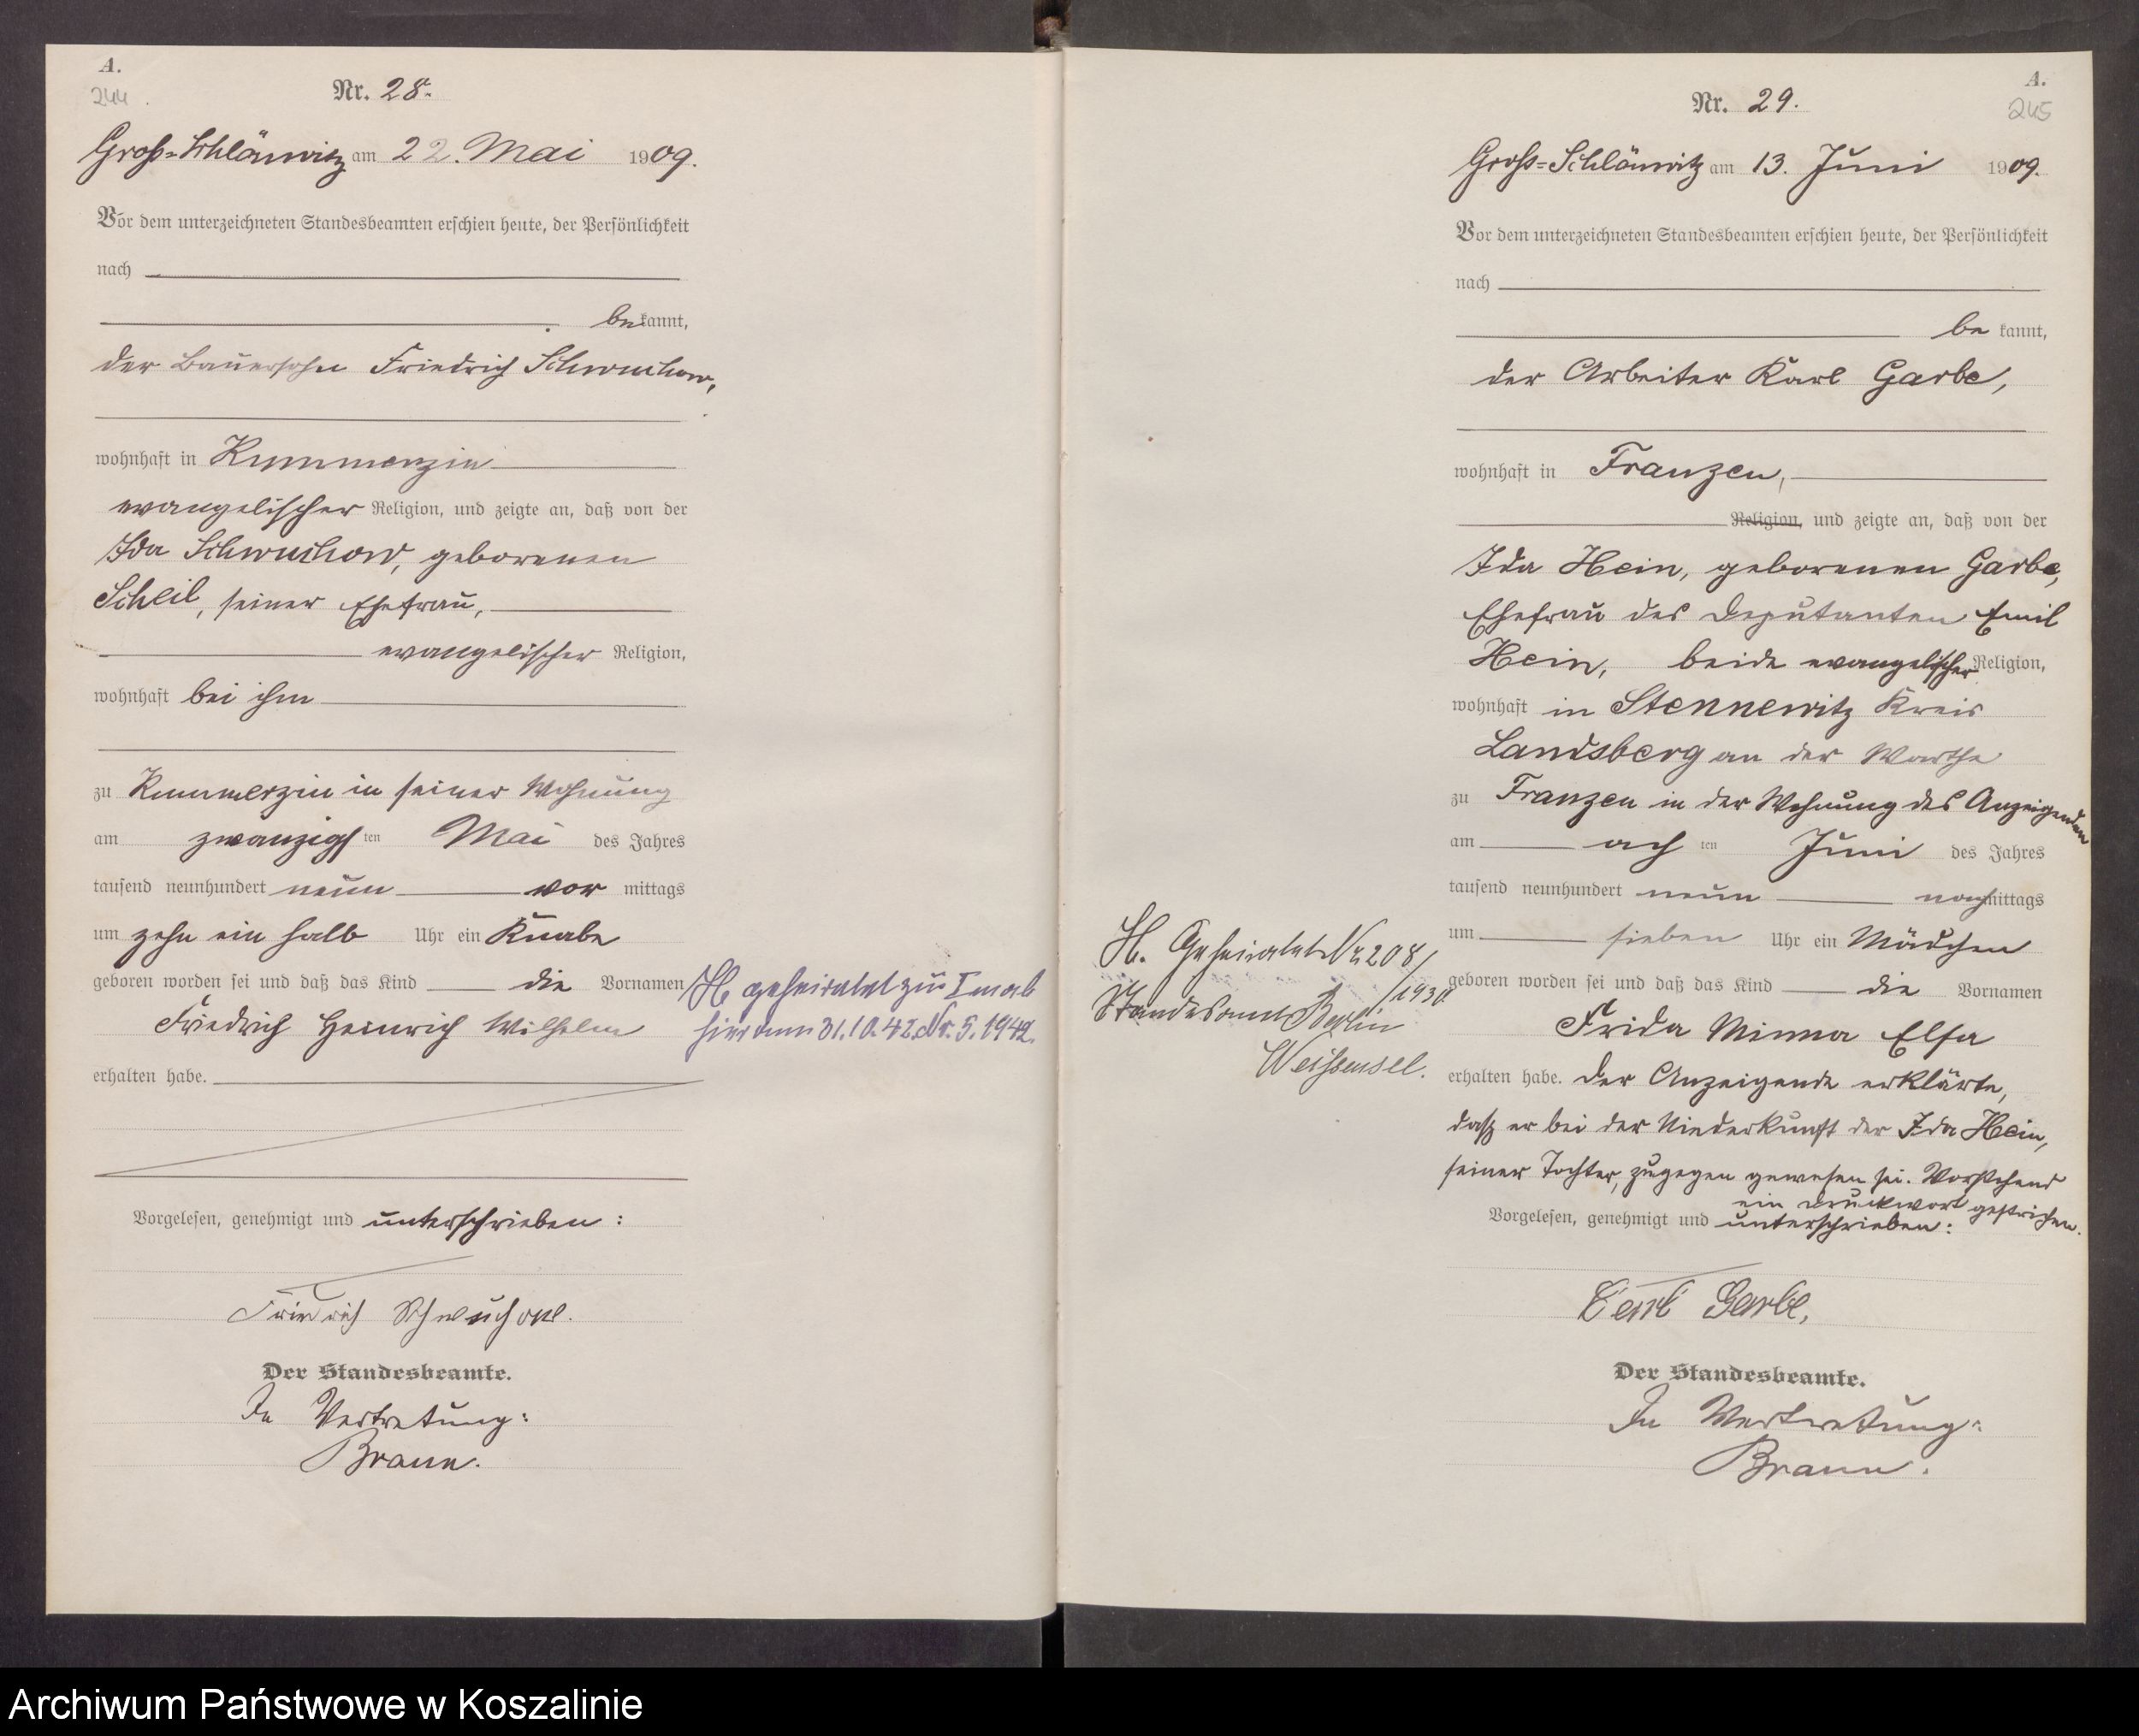 A.
244
Nr. 28.
Groß-Schlönwitz am 22. Mai 1909.
Vor dem unterzeichneten Standesbeamten erschien heute, der Persönlichkeit
nach
bekannt,
der Bauersohn Friedrich Schwuchow,
wohnhaft in Kummerzin
evangelischer Religion, und zeigte an, daß von der
Ida Schwuchow, geborenen
Scheil, seiner Ehefrau,
evangelischer Religion,
wohnhaft bei ihm
zu Kummerzin in seiner Wohnung
am zwanzigsten Mai des Jahres
tausend neunhundert neun vormittags
um zehn ein halb Uhr ein Knabe
geboren worden sei und daß das Kind die Vornamen
Friedrich Heinrich Wilhelm
erhalten habe.
H. geheiratet zum I mal
hier am 31.10.42. Nr. 5. 1942.
Vorgelesen, genehmigt und unterschrieben:
Friedrich Schwuchow.
Der Standesbeamte.
In Vertretung:
Braun.
A.
245
Nr. 29.
Groß-Schlönwitz am 13. Juni 1909.
Vor dem unterzeichneten Standesbeamten erschien heute, der Persönlichkeit
nach
bekannt,
der Arbeiter Karl Garbe,
wohnhaft in Franzen,
Religion, und zeigte an, daß von der
Ida Hein, geborenen Garbe,
Ehefrau des Deputanten Emil
Hein, beide evangelischer Religion,
wohnhaft in Stennewitz Kreis
Landsberg an der Warthe
zu Franzen in der Wohnung des Anzeigenden
am achten Juni des Jahres
tausend neunhundert neun nachmittags
um sieben Uhr ein Mädchen
geboren worden sei und daß das Kind die Vornamen
Frida Minna Elsa
erhalten habe. Der Anzeigende erklärte,
daß er bei der Niederkunft der Ida Hein,
seiner Tochter, zugegen gewesen sei. Vorstehend
ein Druckwort gestrichen.
Vorgelesen, genehmigt und unterschrieben:
H. Geheiratet Nr. 208/1930
Standesamt Berlin
Weißensee.
Karl Garbe,
Der Standesbeamte.
In Vertretung:
Braun.
Archiwum Państwowe w Koszalinie